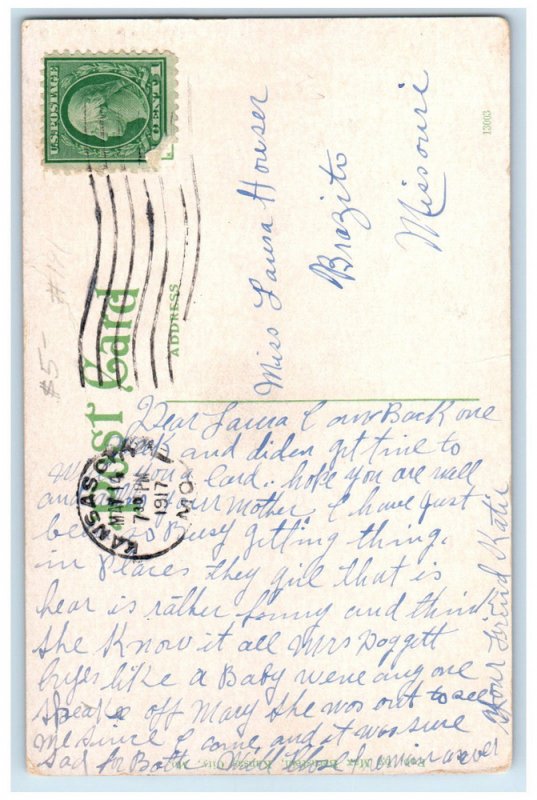 U.S. POSTAGE
1 CENT 1
#191
$5-
Post Card
ADDRESS
13003
KANSAS CITY
MAY 14
7 30 PM
1917
MO.
Miss Laura Houser
Brazito
Missouri
Dear Laura I am Back one
week and diden get time to
you a Card. hope you are well
and your Mother I have Just
been to Busy getting thing.
in Places they girl that is
hear is rather funny and think
she Know it all Mrs Doggett
Cryes like a Baby wene any one
speake off Mary she was out to see
me since I come and it was sure
sad for Both will close hemin as ever
your Friend Katie
Kansas City, Mo.